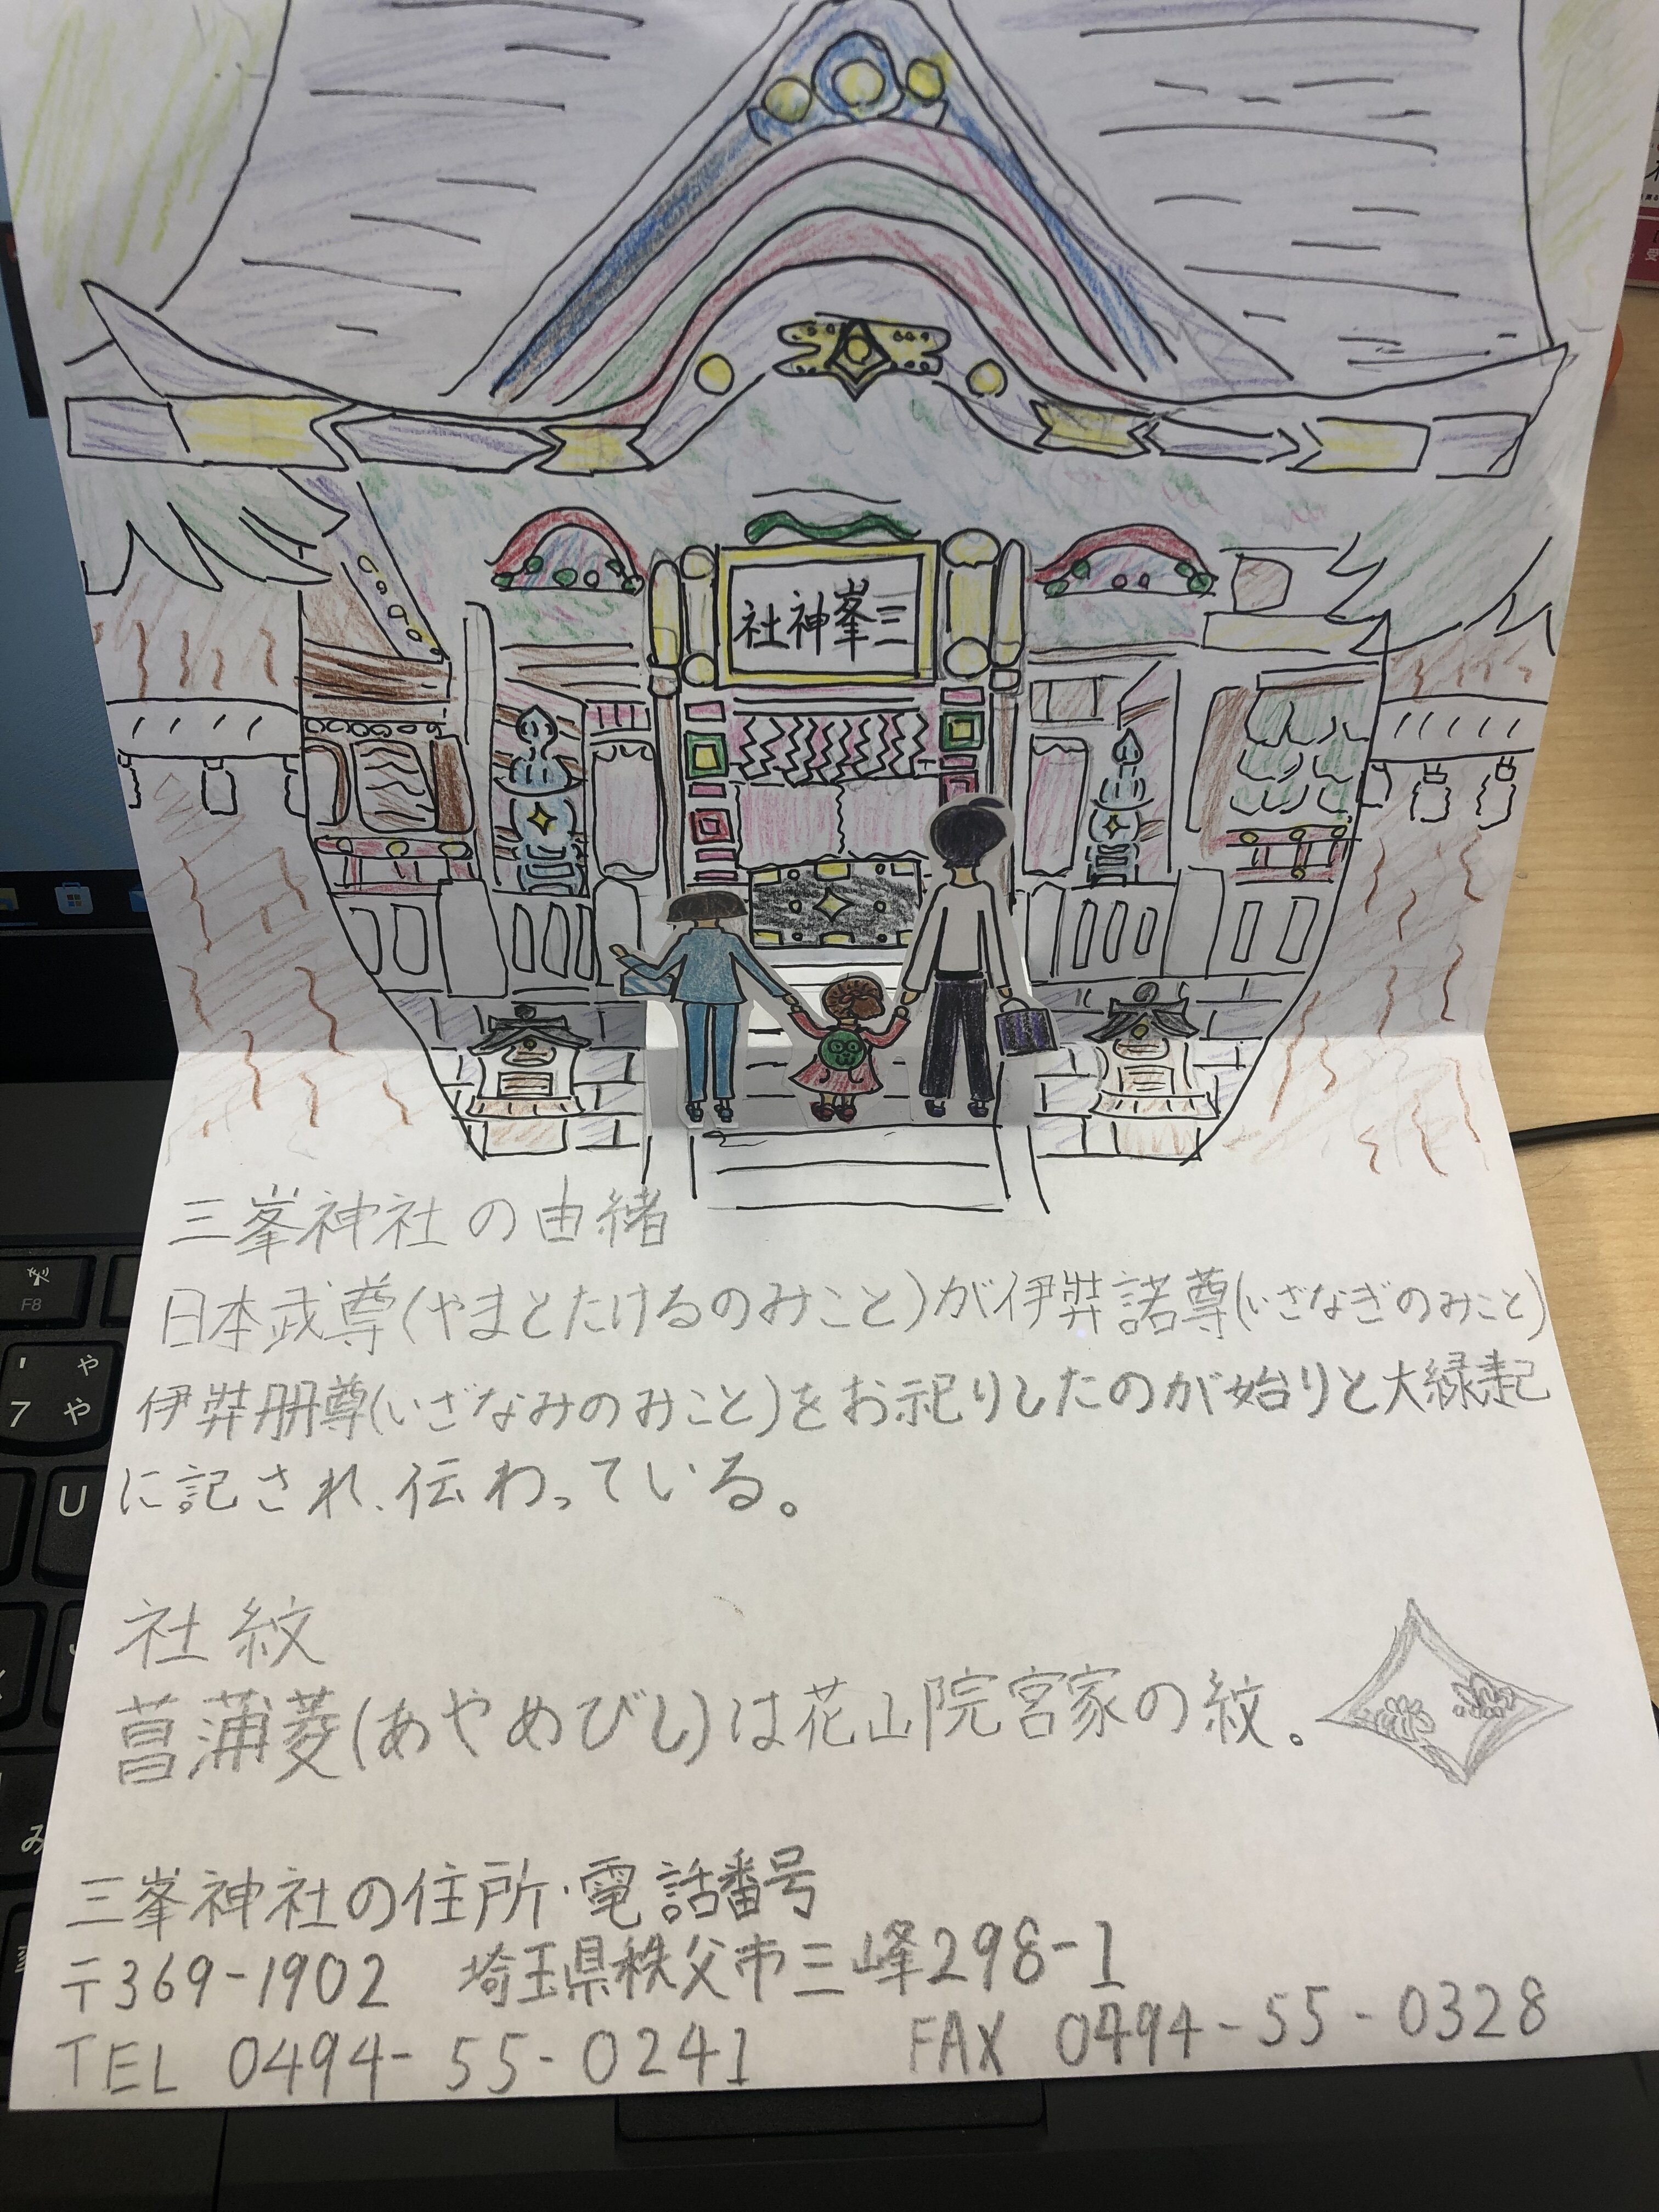 社神峯三
三峯神社の由緒
日本武尊(やまとたけるのみこと)が伊弉諾尊(いざなぎのみこと)
伊弉册尊(いざなみのみこと)をお祀りしたのが始りと大縁起
に記され、伝わっている。
社紋
菖蒲菱(あやめびし)は花山院宮家の紋。
三峯神社の住所・電話番号
〒369-1902 埼玉県秩父市三峰298-1
TEL 0494-55-0241 FAX 0494-55-0328
F8
' や
7 や
U
み